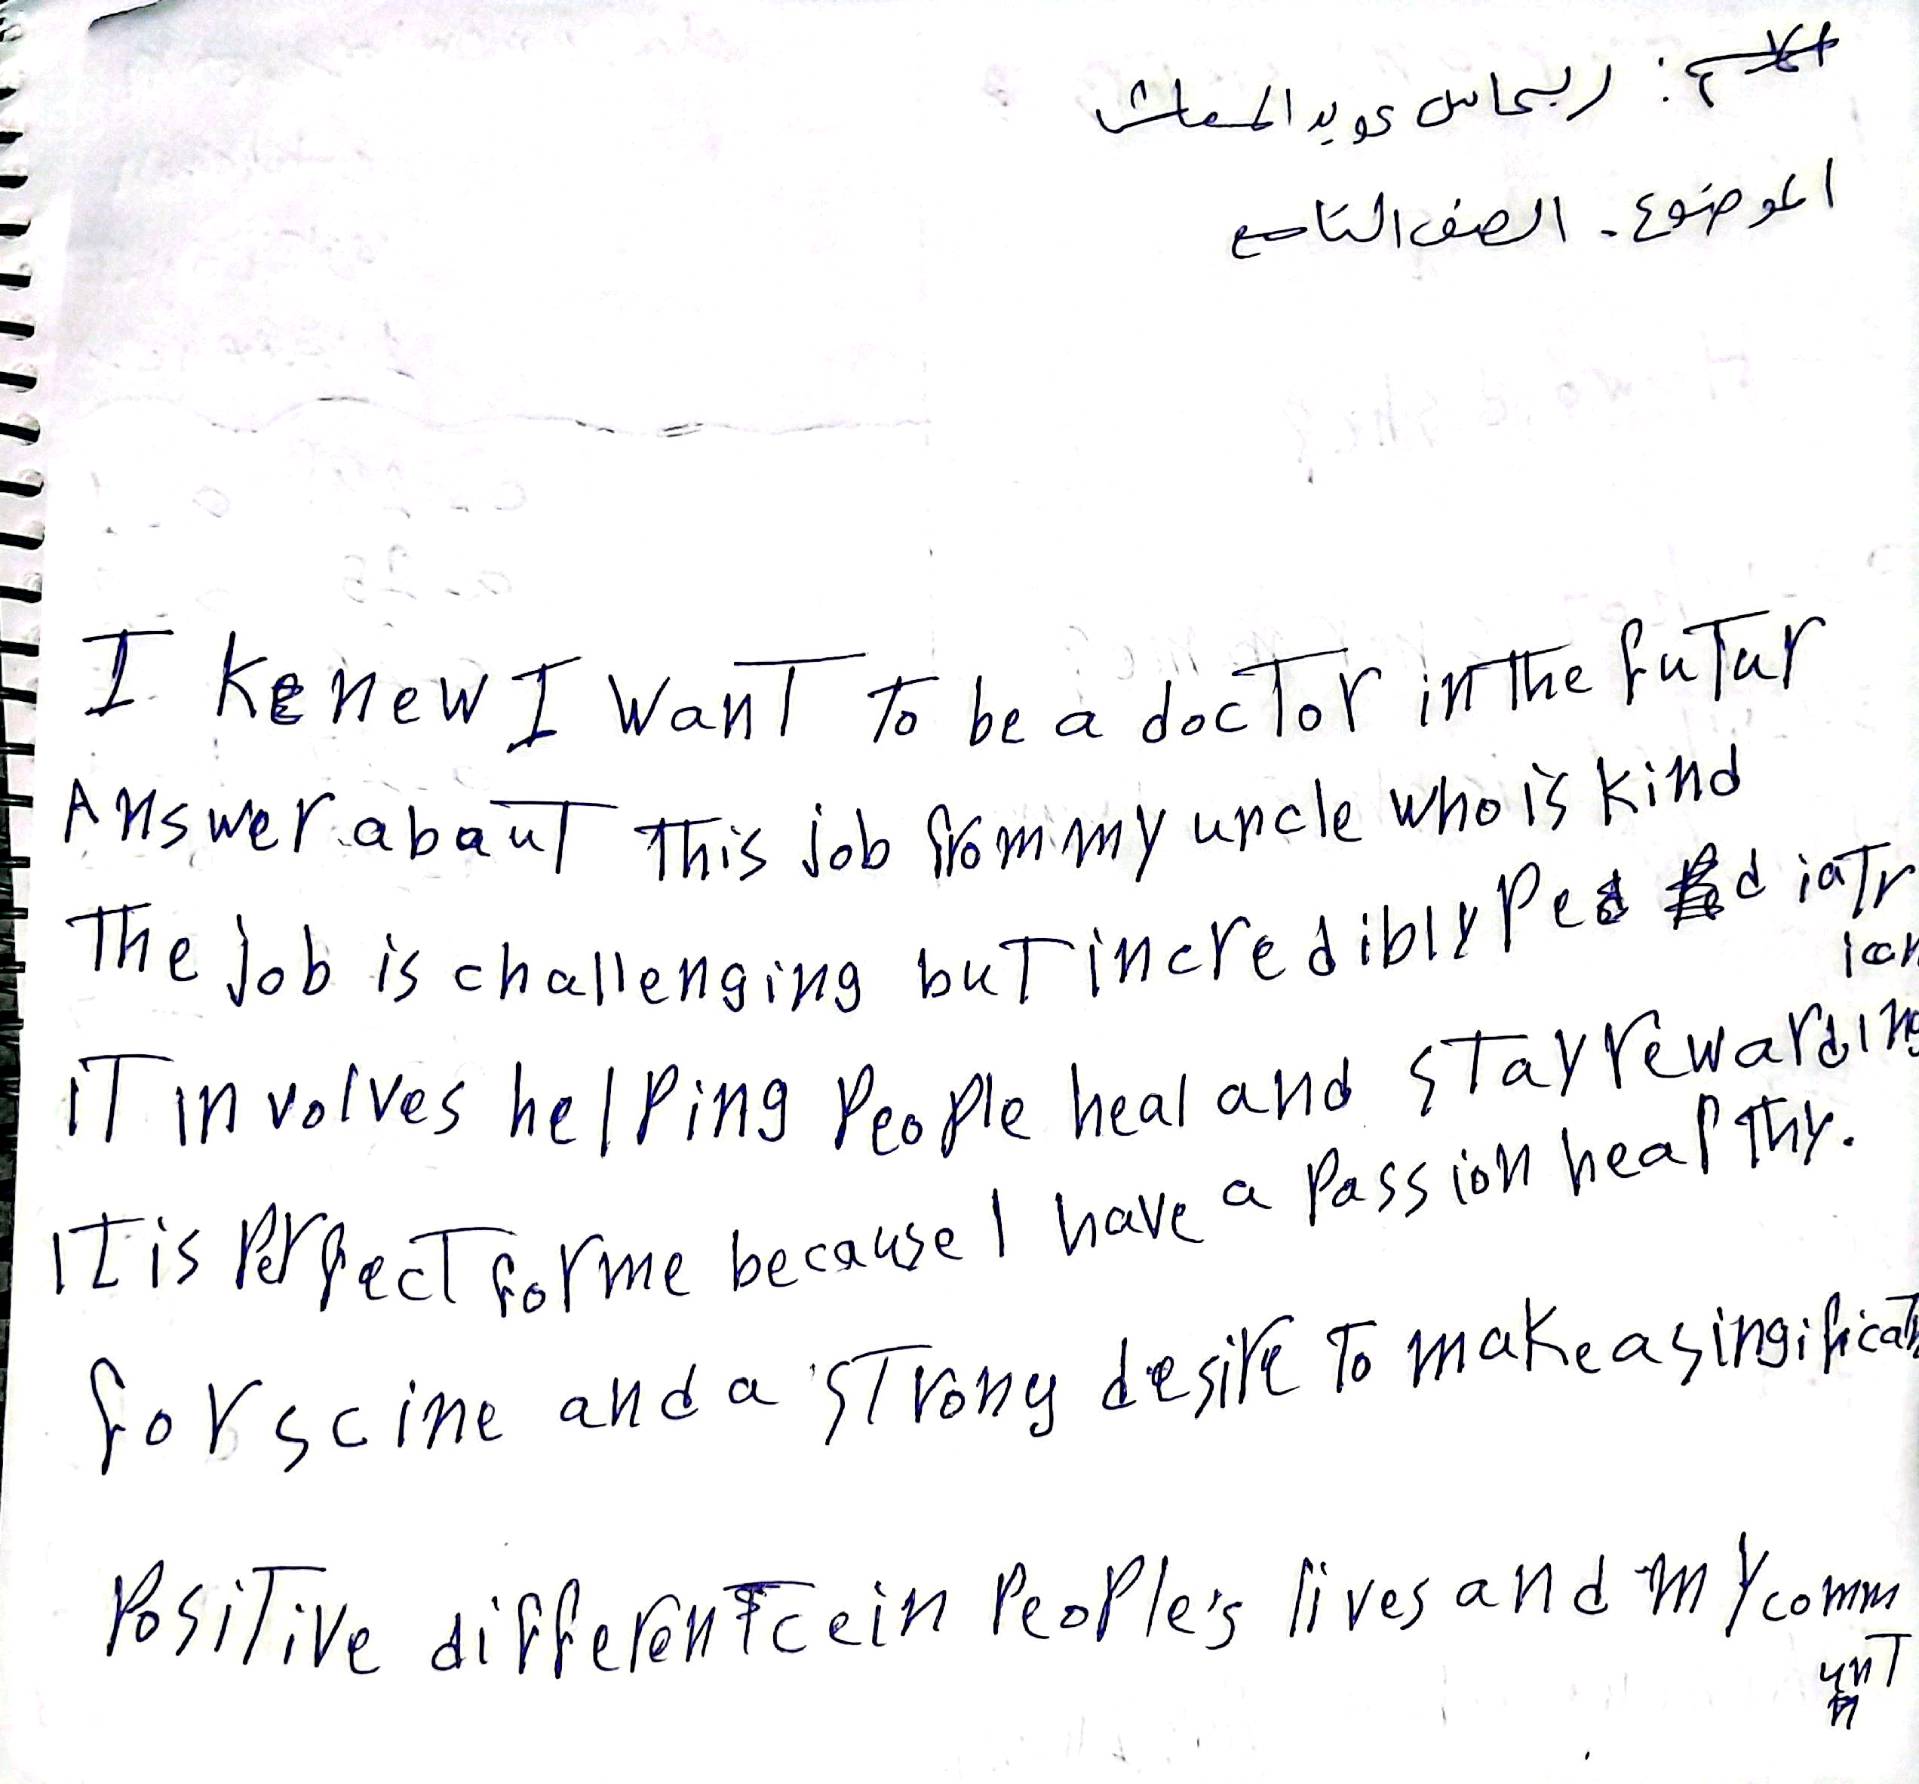 الاسم: ريحاس عويد
الموضوع - الصف التاسع
I kenew I want to be a doctor in the futur
Answer abaut this job from my uncle who is kind
The job is challenging but incredibly Pediatr
ian
iT in volves helping people heal and stay rewarding
IT is perfect for me because I have a passion healthy.
for scine and a strong desire to make a singifican
Positive differentce in people's lives and my comm
unT